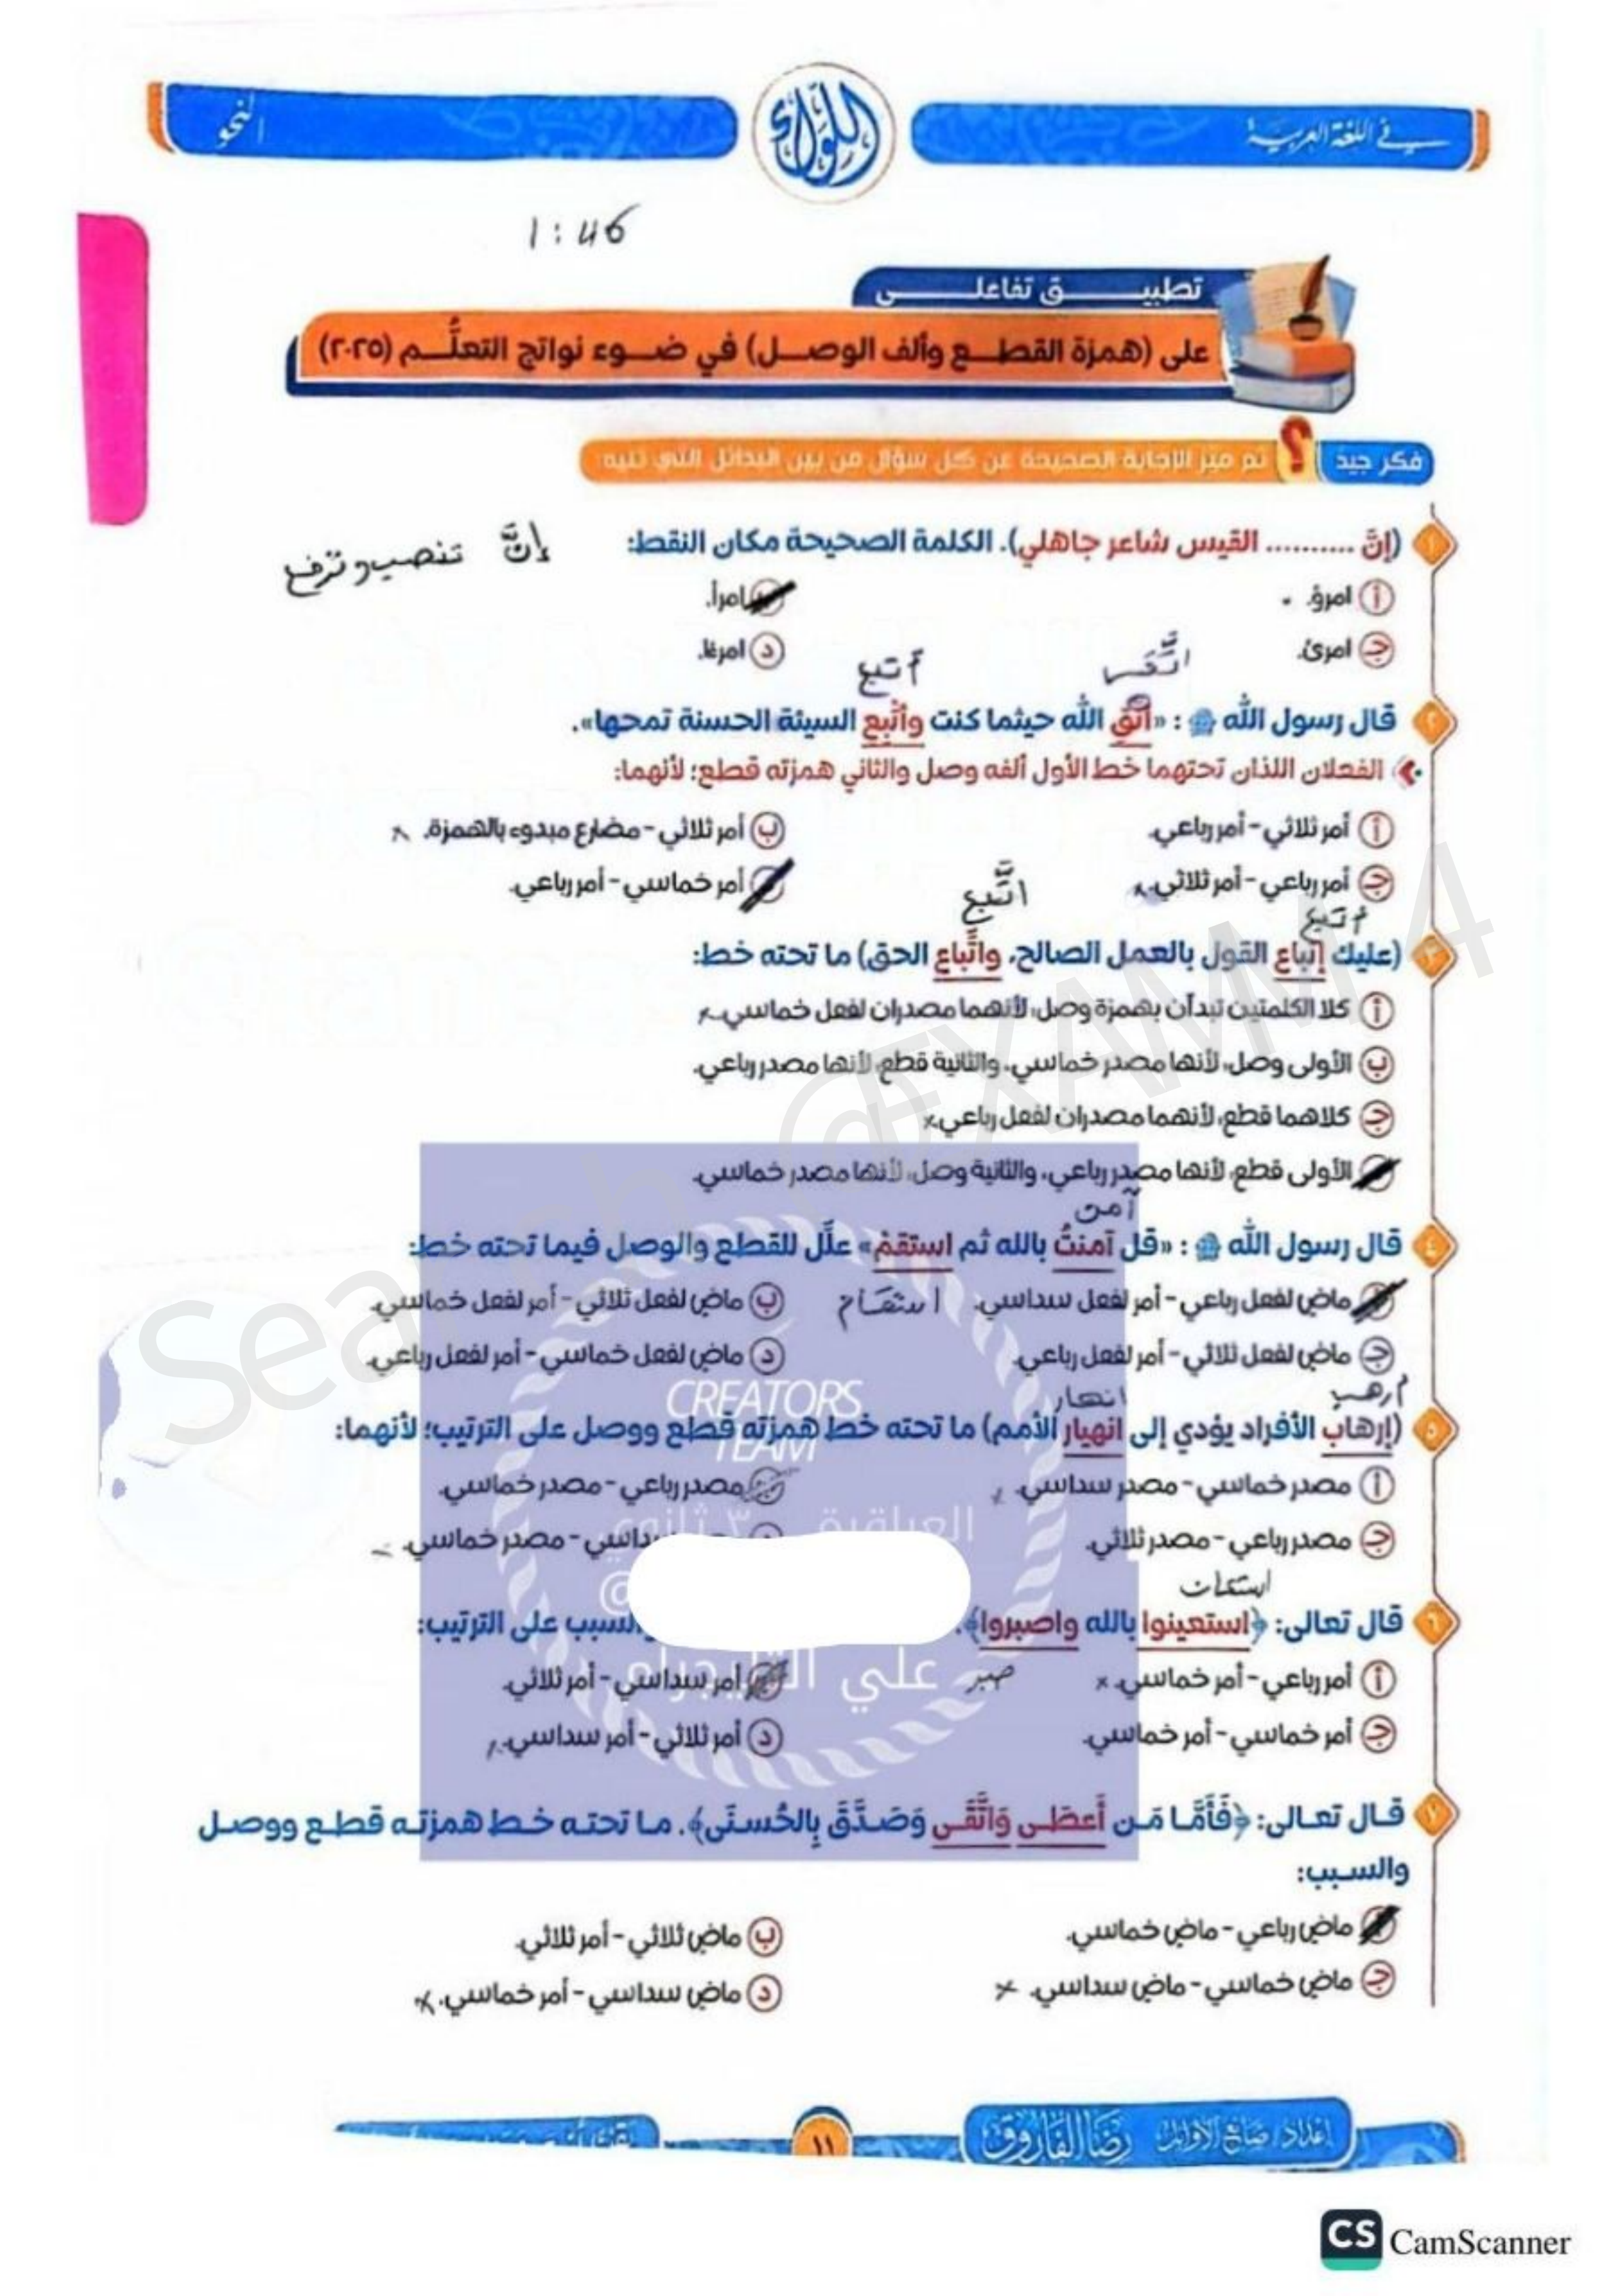 في اللغة العربية
اللؤلؤة
النحو
1:46
تطبيق تفاعلي
على (همزة القطع وألف الوصل) في ضوء نواتج التعلُّم (٢٠٢٥)
فكر جيد ? ثم ميّز الإجابة الصحيحة عن كل سؤال من بين البدائل التي تليه:
١ (إنَّ .......... القيس شاعر جاهلي). الكلمة الصحيحة مكان النقط:
إنَّ تنصب وترفع
أ امرؤ. ب امرأ.
ج امرئ. د امرءًا.
اتَّقى أتبع
٢ قال رسول الله ﷺ : «اتَّق الله حيثما كنت وأتْبع السيئة الحسنة تمحها».
الفعلان اللذان تحتهما خط الأول ألفه وصل والثاني همزته قطع؛ لأنهما:
أ أمر ثلاثي - أمر رباعي. ب أمر ثلاثي - مضارع مبدوء بالهمزة. x
ج أمر رباعي - أمر ثلاثي. x د أمر خماسي - أمر رباعي.
أتبع اتَّبع
٣ (عليك إتباع القول بالعمل الصالح، واتَّباع الحق) ما تحته خط:
أ كلا الكلمتين تبدآن بهمزة وصل، لأنهما مصدران لفعل خماسي. x
ب الأولى وصل، لأنها مصدر خماسي، والثانية قطع، لأنها مصدر رباعي.
ج كلاهما قطع، لأنهما مصدران لفعل رباعي. x
د الأولى قطع، لأنها مصدر رباعي، والثانية وصل، لأنها مصدر خماسي.
آمن
٤ قال رسول الله ﷺ : «قل آمنتُ بالله ثم استقمْ» علّل للقطع والوصل فيما تحته خط:
أ ماض لفعل رباعي - أمر لفعل سداسي. استقام ب ماض لفعل ثلاثي - أمر لفعل خماسي.
ج ماض لفعل ثلاثي - أمر لفعل رباعي. د ماض لفعل خماسي - أمر لفعل رباعي.
أرهب انهار
٥ (إرهاب الأفراد يؤدي إلى انهيار الأمم) ما تحته خط همزته قطع ووصل على الترتيب؛ لأنهما:
أ مصدر خماسي - مصدر سداسي. x ب مصدر رباعي - مصدر خماسي.
ج مصدر رباعي - مصدر ثلاثي. سداسي - مصدر خماسي.
استعان
٦ قال تعالى: ﴿استعينوا بالله واصبروا﴾. والسبب على الترتيب:
أ أمر رباعي - أمر خماسي. x صبر ب أمر سداسي - أمر ثلاثي.
ج أمر خماسي - أمر خماسي. د أمر ثلاثي - أمر سداسي.
٧ قال تعالى: ﴿فَأَمَّا مَن أَعطَى وَاتَّقَى وَصَدَّقَ بِالحُسنَى﴾. ما تحته خط همزته قطع ووصل
والسبب:
أ ماض رباعي - ماض خماسي. ب ماض ثلاثي - أمر ثلاثي.
ج ماض خماسي - ماض سداسي. x د ماض سداسي - أمر خماسي. x
CREATORS
TEAM
العباقرة ٣ ثانوي
@
علي التليجرام
إعداد / صانع الأوائل رضا الفاروق
١١
CS CamScanner